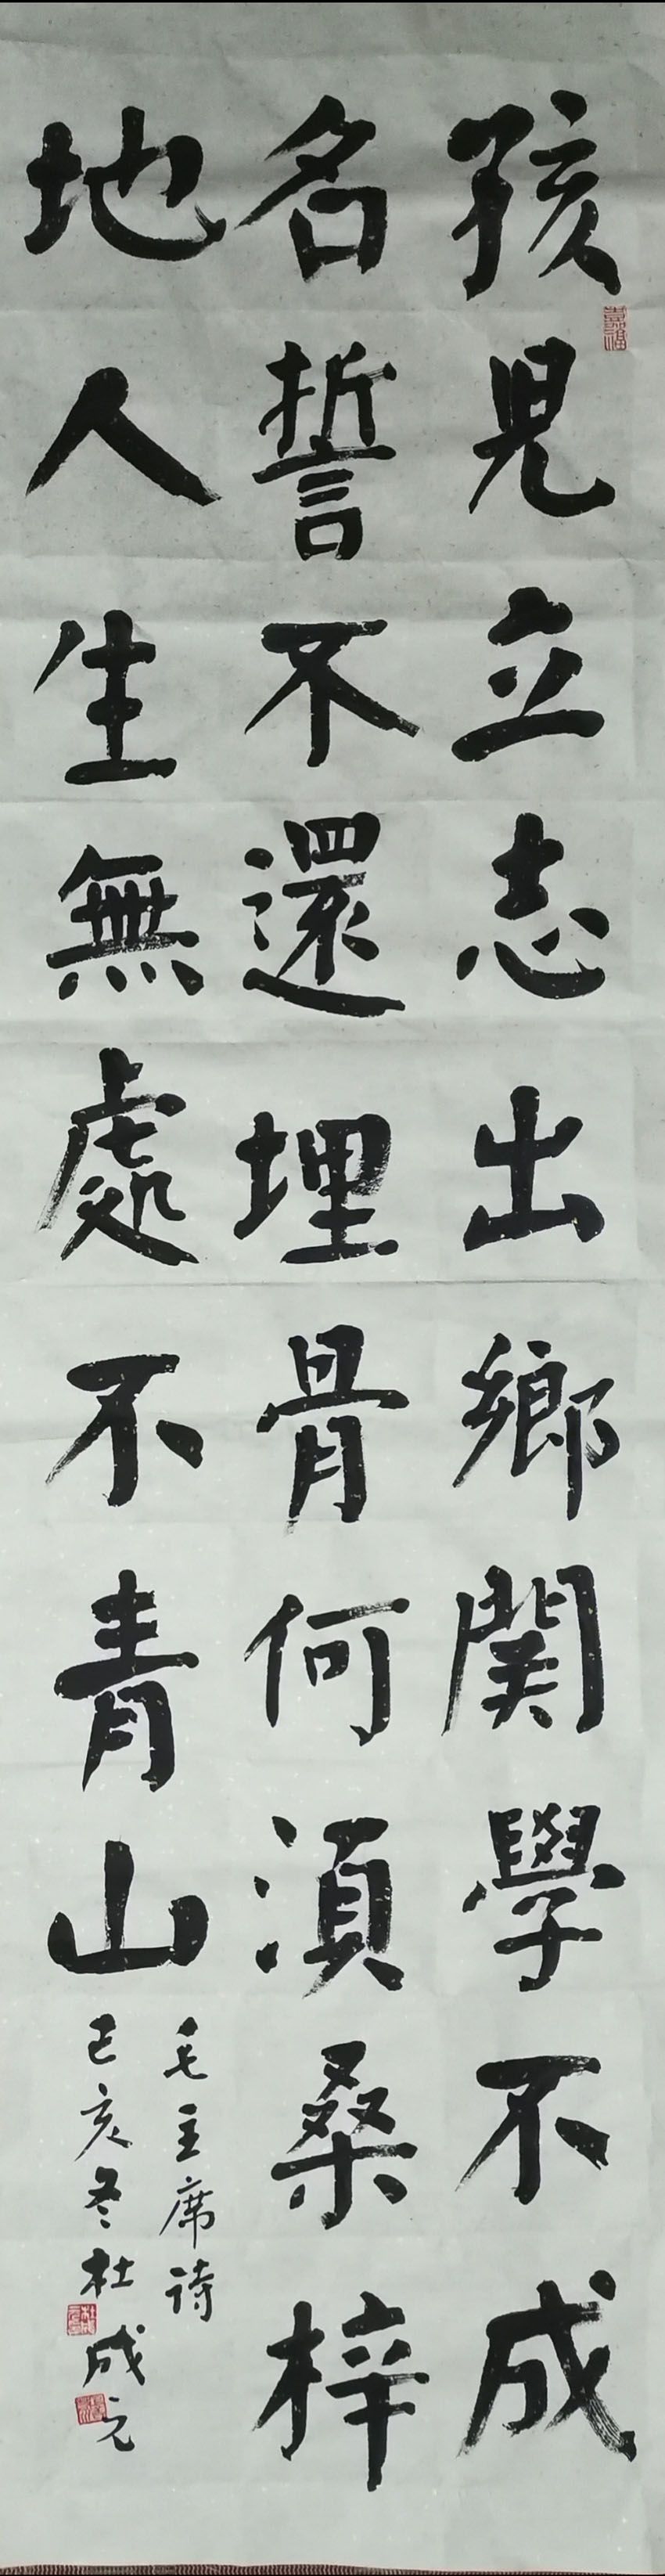 孩兒立志出鄉関學不成
名誓不還埋骨何湏桑梓
地人生無處不青山
毛主席詩
己亥冬杜成元